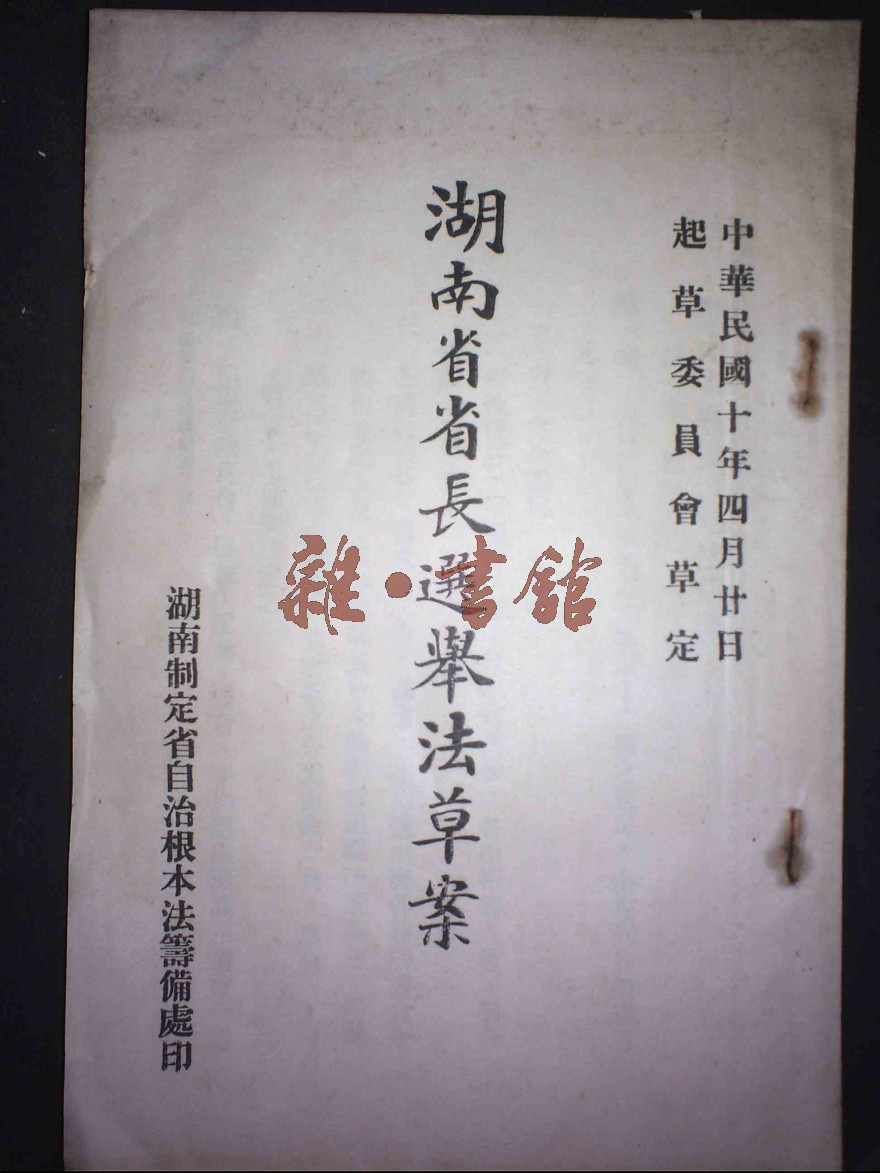 中華民國十年四月廿日
起草委員會草定
湖南省省長選舉法草案
雜•書館
湖南制定省自治根本法籌備處印